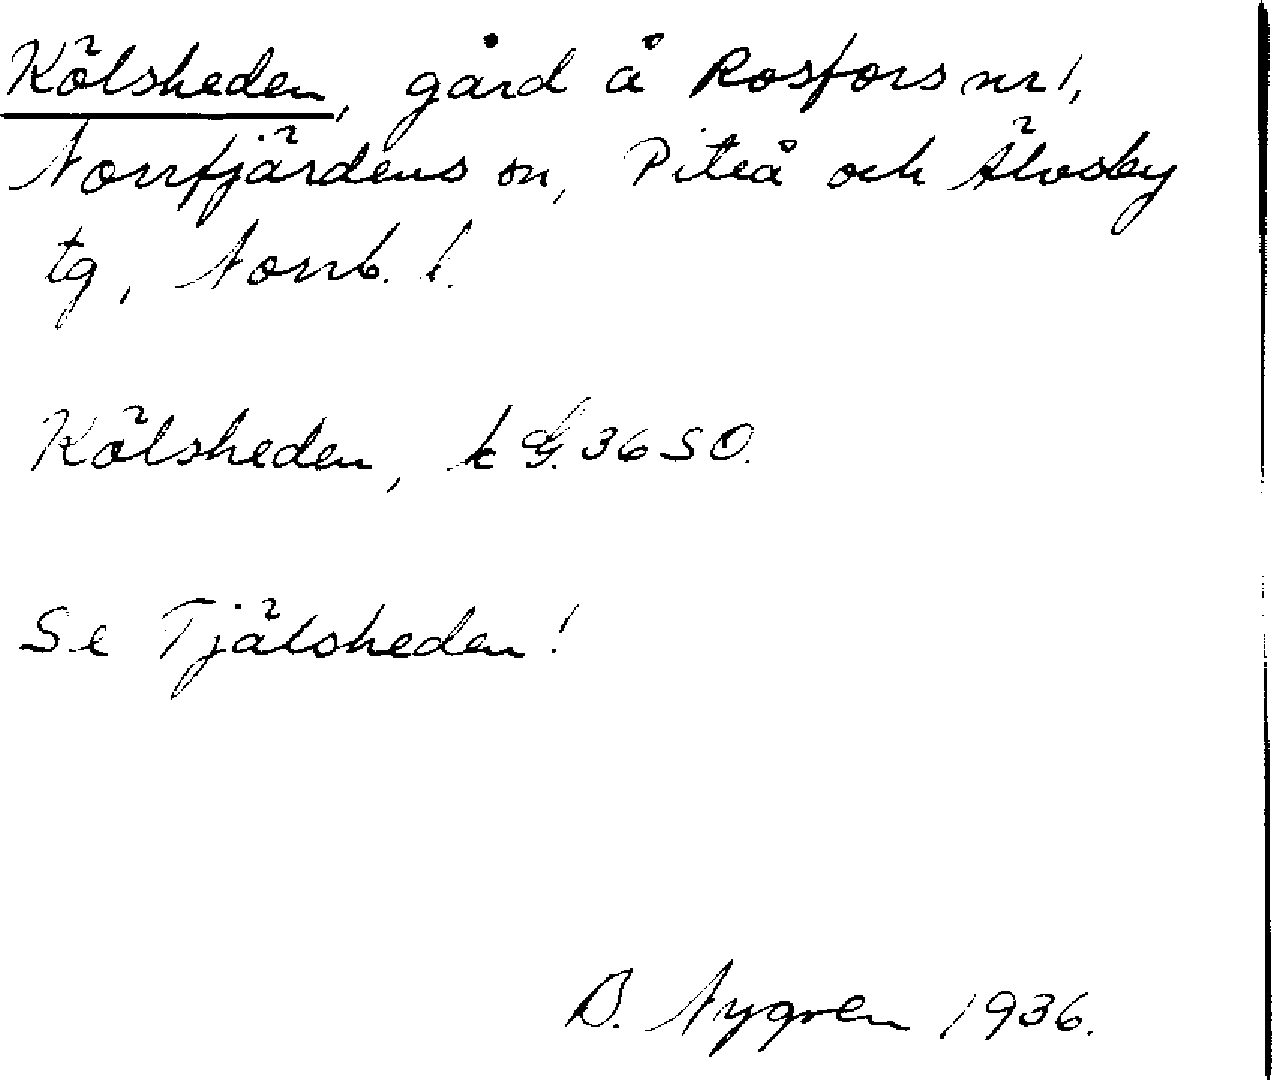 Kälsheden, gård å Rosfors nr 1,
Norrfjärdens sn, Piteå och Älvsby
tg, Norrb. l.
Kälsheden, k G. 36 SO.
Se Tjälsheden!
B. Nygren 1936.